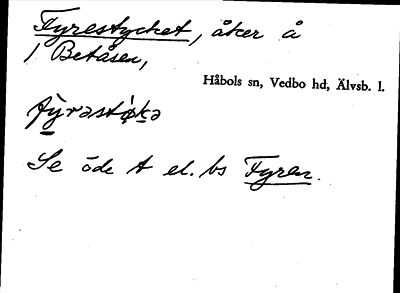 Fyrestycket, åker å
1 Betåsen,
Håbols sn, Vedbo hd, Älvsb. l.
Se öde t el. bs Fyren.